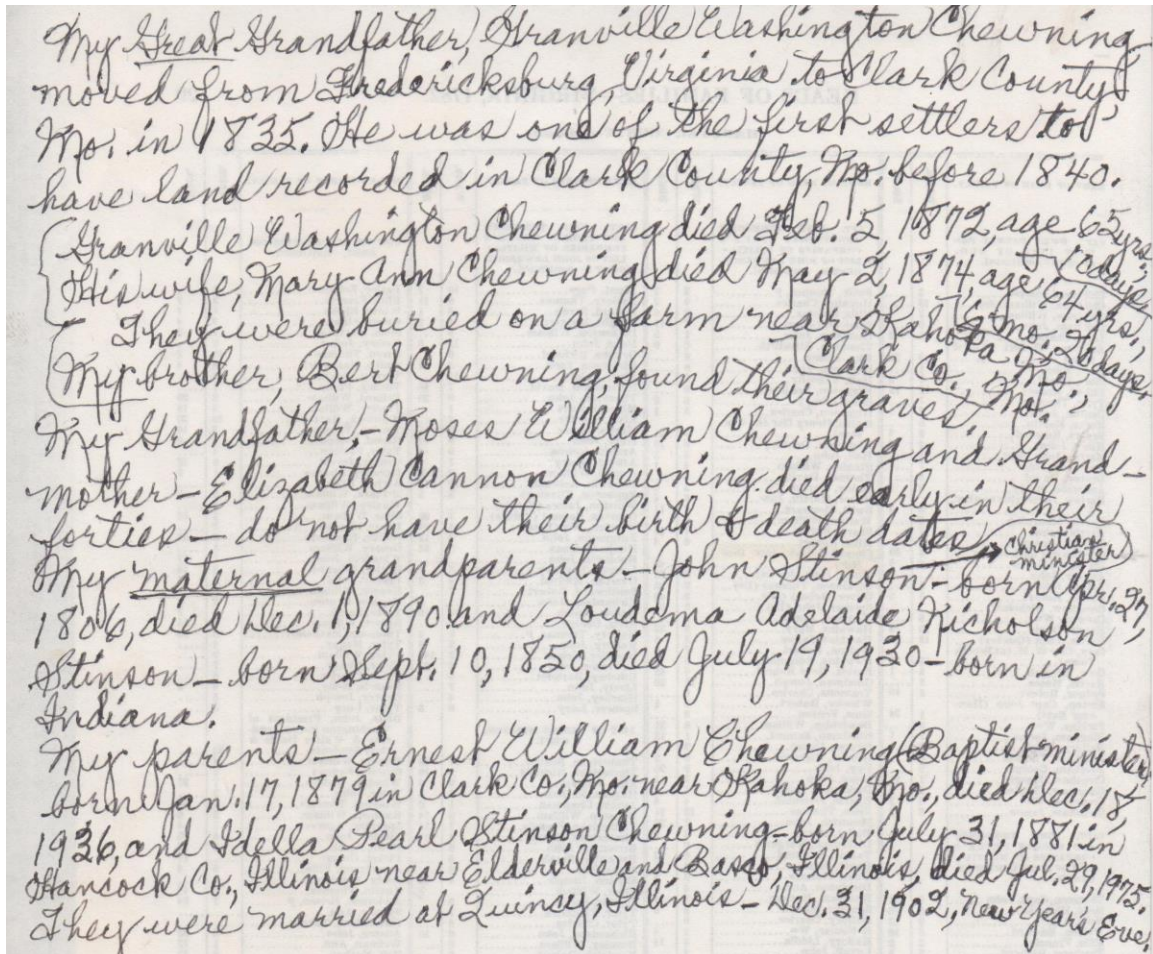 My Great Grandfather, Granville Washington Chewning
moved from Fredericksburg, Virginia to Clark County,
Mo. in 1835. He was one of the first settlers to
have land recorded in Clark County, Mo. before 1840.
Granville Washington Chewning died Feb. 5, 1872, age 65 yrs.,
7 days
His wife, Mary Ann Chewning died May 2, 1874, age 64 yrs.,
6 mo. 26 days.
They were buried on a farm near Kahoka, Mo.,
Clark Co., Mo.
My brother, Bert Chewning, found their graves.
My Grandfather,- Moses William Chewning and Grand-
mother - Elizabeth Cannon Chewning died early in their
forties - do not have their birth & death dates
My maternal grandparents - John Stinson - born Apr. 27,
Christian
minister
1806, died Dec. 1, 1890 and Loudema Adelaide Nicholson
Stinson - born Sept. 10, 1850, died July 19, 1930 - born in
Indiana.
My parents - Ernest William Chewning (Baptist minister)
born Jan. 17, 1879 in Clark Co., Mo. near Kahoka, Mo., died Dec. 18,
1936, and Idella Pearl Stinson Chewning - born July 31, 1881 in
Hancock Co., Illinois near Elderville and Basco, Illinois, died Jul. 29, 1975.
They were married at Quincy, Illinois - Dec. 31, 1902, New Year's Eve.